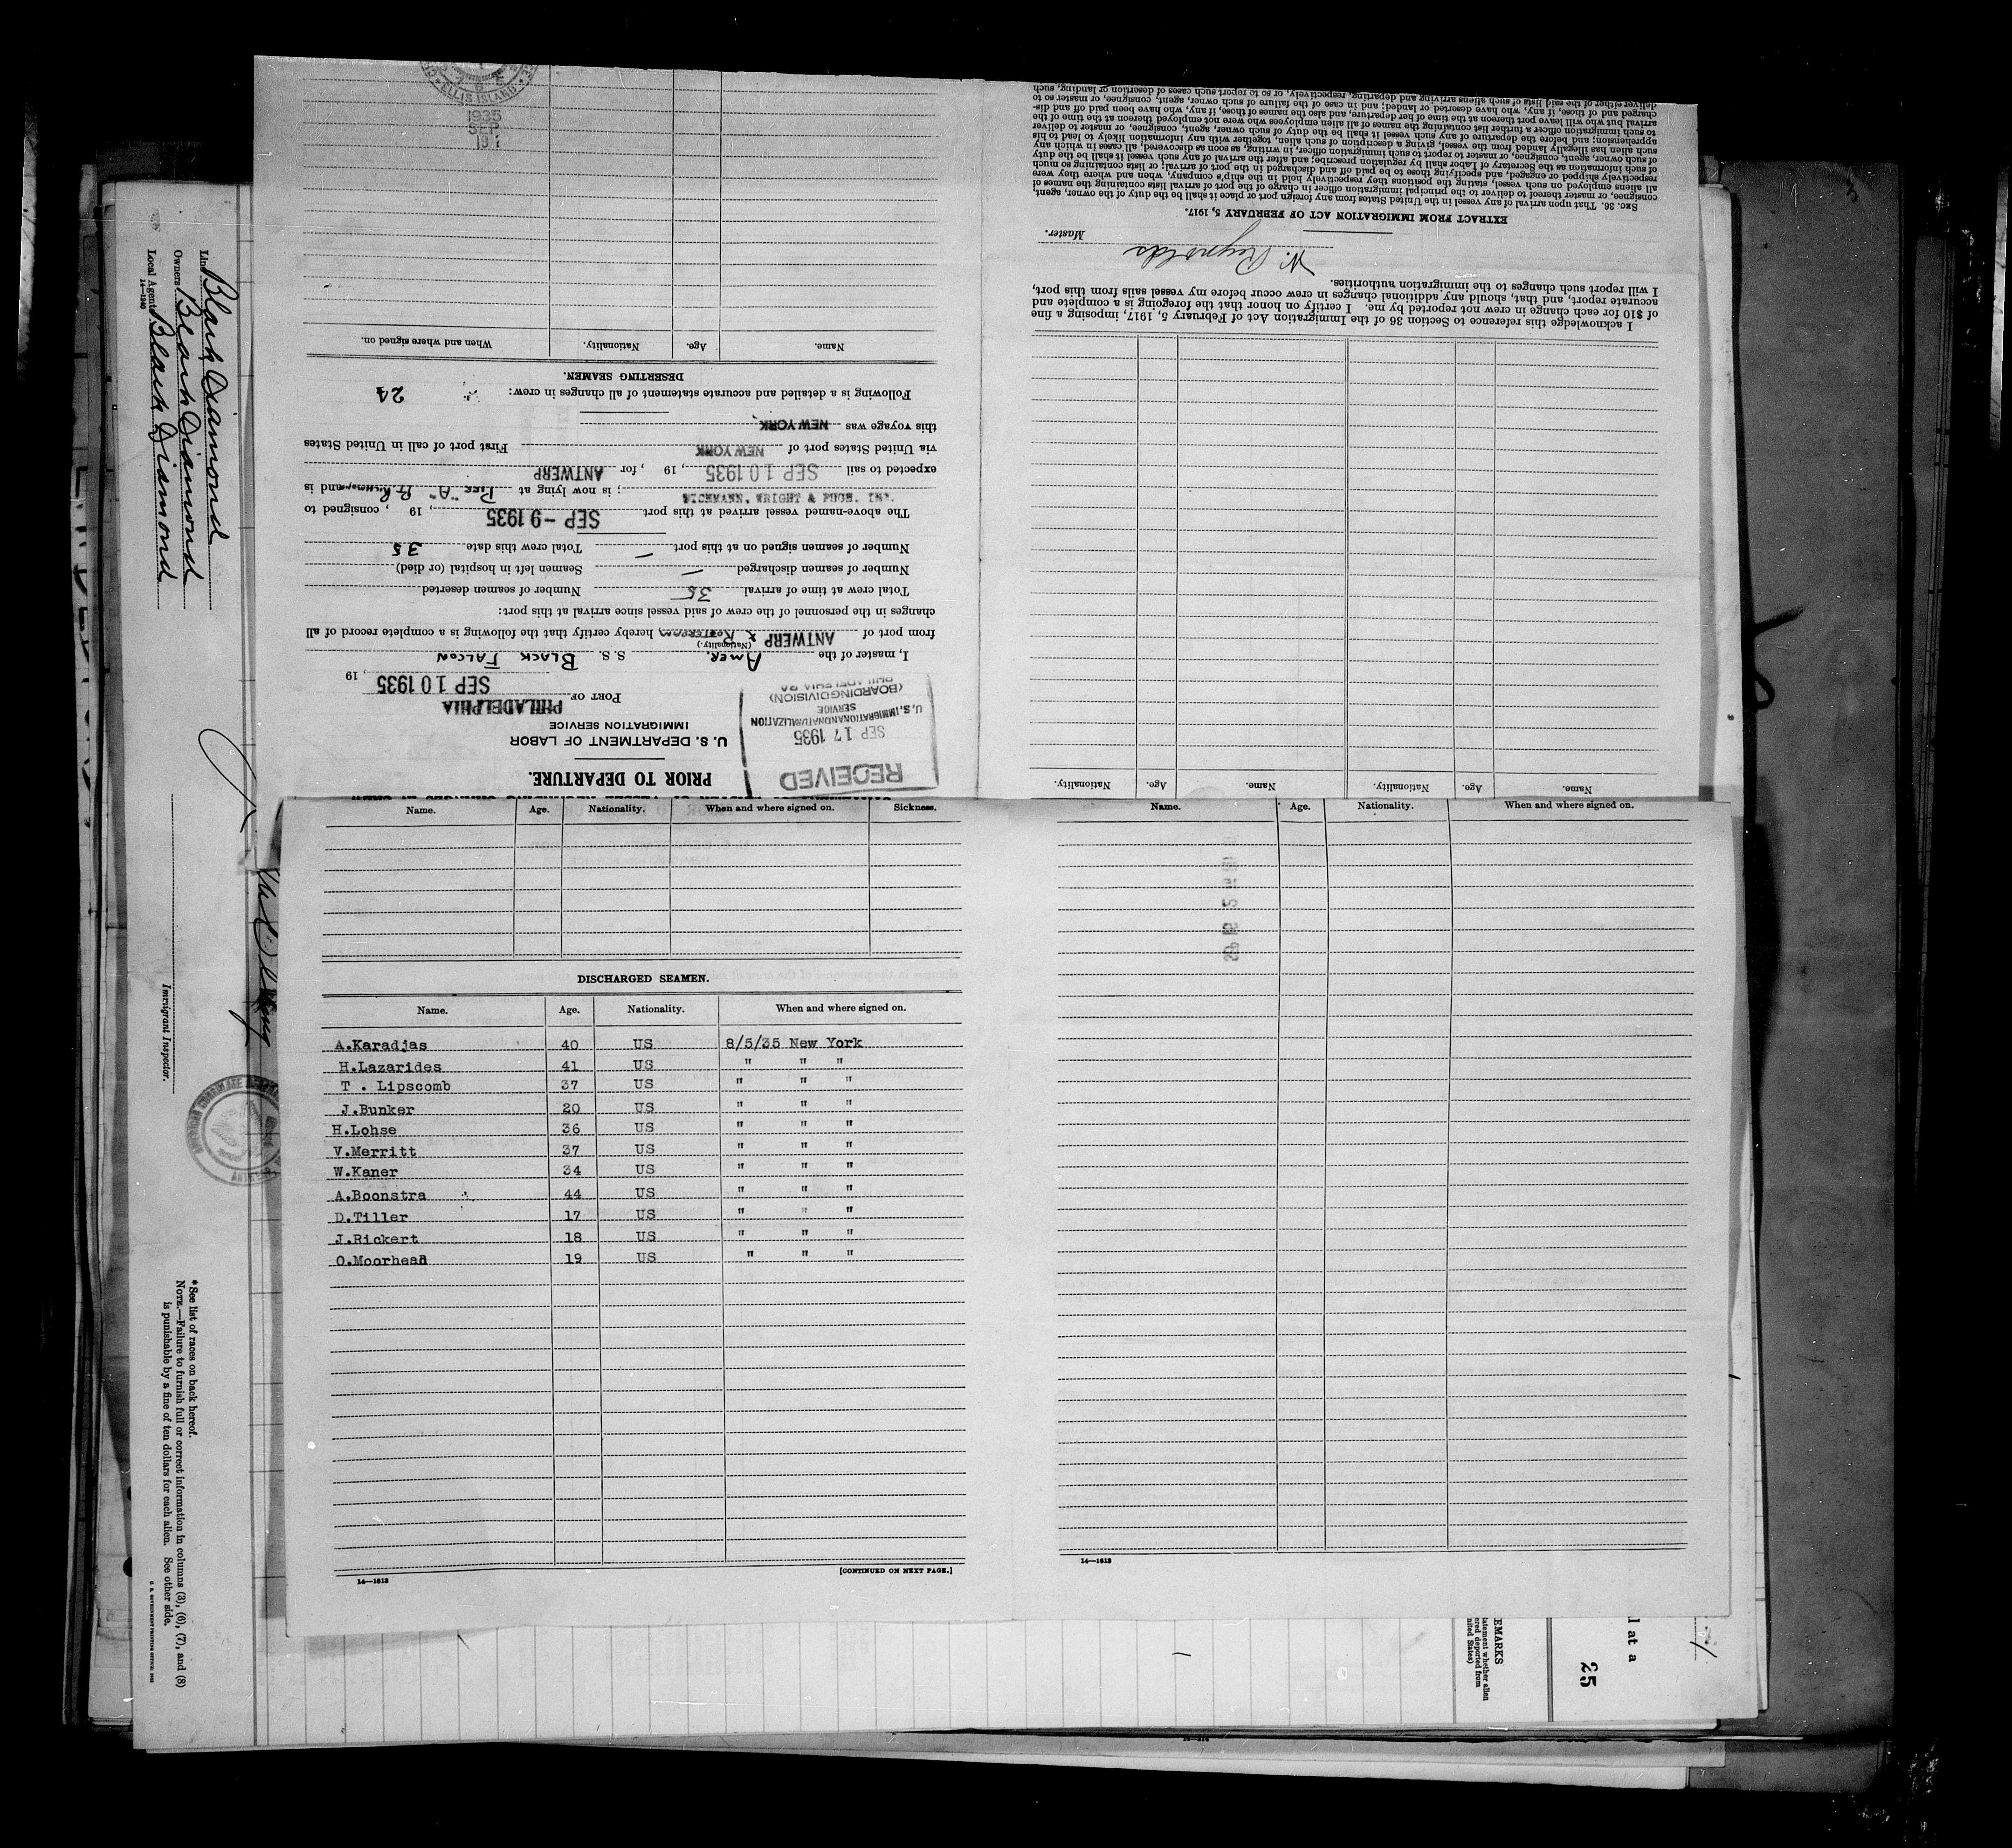 Line Black Diamond
Owners Black Diamond
Local Agents Black Diamond
14—1240
Immigrant Inspector.
* See list of races on back hereof.
NOTE.—Failure to furnish full or correct information in columns (3), (6), (7), and (8)
is punishable by a fine of ten dollars for each alien. See other side.
PRIOR TO DEPARTURE.
U. S. DEPARTMENT OF LABOR
IMMIGRATION SERVICE
RECEIVED
SEP 17 1935
U.S. IMMIGRATION AND NATURALIZATION
SERVICE
(BOARDING DIVISION)
PHILADELPHIA PA
PORT OF PHILADELPHIA
SEP 10 1935, 19
I, master of the AMER. S. S. BLACK FALCON
(Nationality.)
from port of ANTWERP & ROTTERDAM hereby certify that the following is a complete record of all
changes in the personnel of the crew of said vessel since arrival at this port:
Total crew at time of arrival 35 Number of seamen deserted
Number of seamen discharged — Seamen left in hospital (or died)
Number of seamen signed on at this port — Total crew this date 35
The above-named vessel arrived at this port SEP -9 1935, 19 , consigned to
; is now lying at PIER "A" and is
expected to sail SEP 10 1935, 19 , for ANTWERP
via United States port of NEW YORK First port of call in United States
this voyage was NEW YORK
Following is a detailed and accurate statement of all changes in crew: 24
DESERTING SEAMEN.
Name. Age. Nationality. When and where signed on.
ELLIS ISLAND
1935
SEP
Name. Age. Nationality. Name. Age. Nationality.
I acknowledge this reference to Section 36 of the Immigration Act of February 5, 1917, imposing a fine
of $10 for each change in crew not reported by me. I certify on honor that the foregoing is a complete and
accurate report, and that, should any additional changes in crew occur before my vessel sails from this port,
I will report such changes to the immigration authorities.
Reynolds
Master.
EXTRACT FROM IMMIGRATION ACT OF FEBRUARY 5, 1917.
SEC. 36. That upon arrival of any vessel in the United States from any foreign port or place it shall be the duty of the owner, agent,
consignee, or master thereof to deliver to the principal immigration officer in charge of the port of arrival lists containing the names of
all aliens employed on such vessel, stating the positions they respectively hold in the ship's company, when and where they were
respectively shipped or engaged, and specifying those to be paid off and discharged in the port of arrival; or lists containing so much
of such information as the Secretary of Labor shall by regulation prescribe; and after the arrival of any such vessel it shall be the duty
of such owner, agent, consignee, or master to report to such immigration officer, in writing, as soon as discovered, all cases in which any
such alien has illegally landed from the vessel, giving a description of such alien, together with any information likely to lead to his
apprehension; and before the departure of any such vessel it shall be the duty of such owner, agent, consignee, or master to deliver
to such immigration officer a further list containing the names of all alien employees who were not employed thereon at the time of the
arrival but who will leave port thereon at the time of her departure, and also the names of those, if any, who have been paid off and dis-
charged and of those, if any, who have deserted or landed; and in case of the failure of such owner, agent, consignee, or master so to
deliver either of the said lists of such aliens arriving and departing, respectively, or so to report such cases of desertion or landing, such
Name. Age. Nationality. When and where signed on. Sickness.
DISCHARGED SEAMEN.
Name. Age. Nationality. When and where signed on.
A.Karadjas 40 US 8/5/35 New York
H.Lazarides 41 US " " "
T . Lipscomb 37 US " " "
J.Bunker 20 US " " "
H.Lohse 36 US " " "
V.Merritt 37 US " " "
W.Kaner 34 US " " "
A.Boonstra 44 US " " "
D.Tiller 17 US " " "
J.Rickert 18 US " " "
O.Moorhead 19 US " " "
14—1613
[CONTINUED ON NEXT PAGE.]
Name. Age. Nationality. When and where signed on.
14—1613
EMARKS
atement whether alien
ered deported from
nited States)
25
l at a